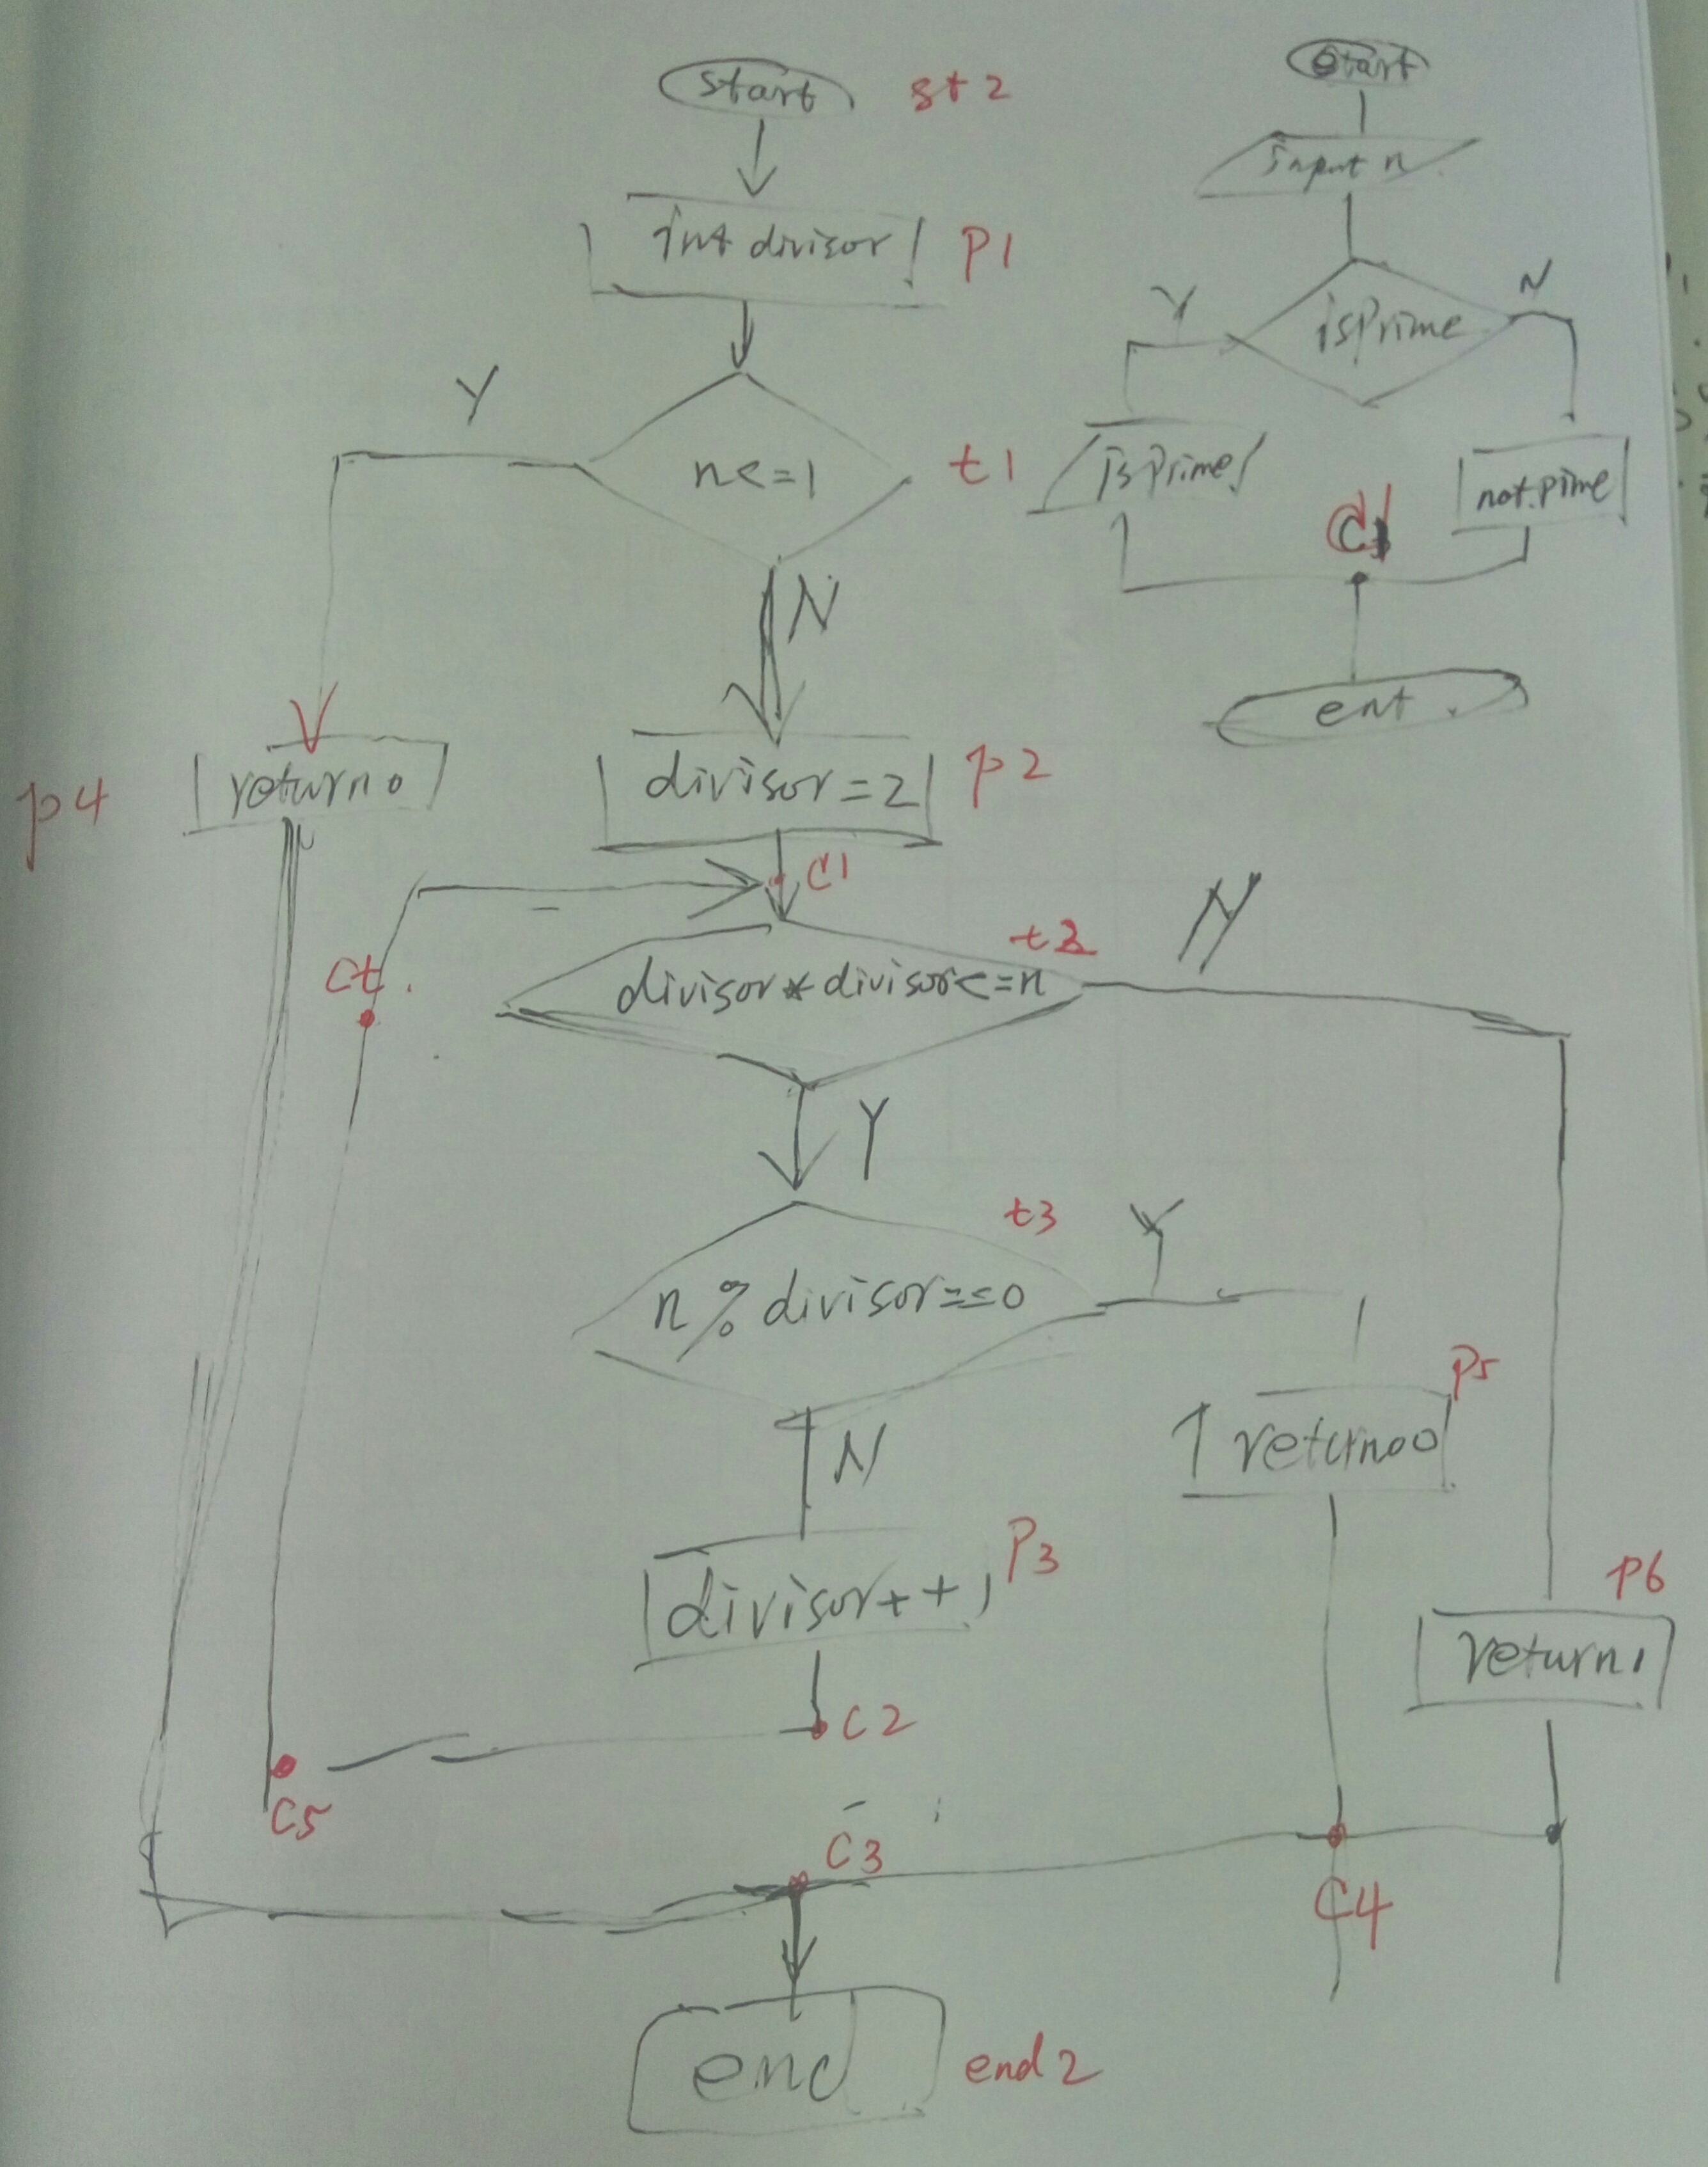 start st2
int divisor p1
Y
n<=1 t1
N
p4 return 0
divisor=2 p2
c1
ct.
t2
N
divisor*divisor<=n
Y
t3
Y
n%divisor==0
p5
return 0
N
p3
divisor++
p6
return 1
c2
c5
c3
c4
end end2
start
input n
Y
N
isPrime
isPrime
not.pime
ent.